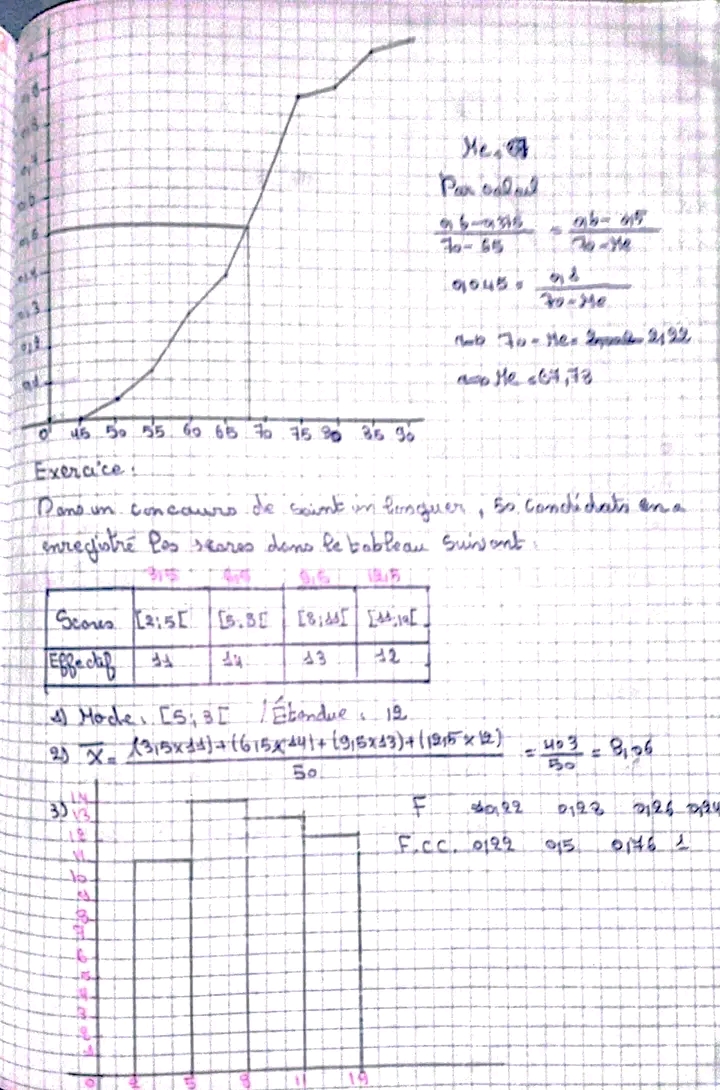 Me = 67
Par calcul
0,6-0,375 / 70-65 = 0,6-0,5 / 70-Me
0,045 = 0,1 / 70-Me
70-Me = 2,22
Me = 67,78
0,4
0,3
0,2
0,1
0 45 50 55 60 65 70 75 80 85 90
Exercice :
Dans un concours de saut en longueur, 50 candidats on a
enregistré les scores dans le tableau suivant :
3,5 6,5 9,5 12,5
Scores [2;5[ [5;8[ [8;11[ [11;14[
Effectif 11 14 13 12
1) Mode : [5;8[ / Étendue : 12
2) X̄ = (3,5x11)+(6,5x14)+(9,5x13)+(12,5x12) / 50 = 403/50 = 8,06
3) 14
13
12
11
10
9
8
7
6
5
4
3
2
1
0 2 5 8 11 14
F 0,22 0,28 0,26 0,24
F.c.c. 0,22 0,5 0,76 1